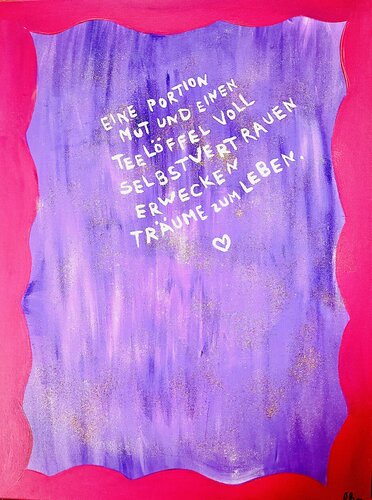 EINE PORTION
MUT UND EINEN
TEELÖFFEL VOLL
SELBSTVERTRAUEN
ERWECKEN
TRÄUME ZUM LEBEN.